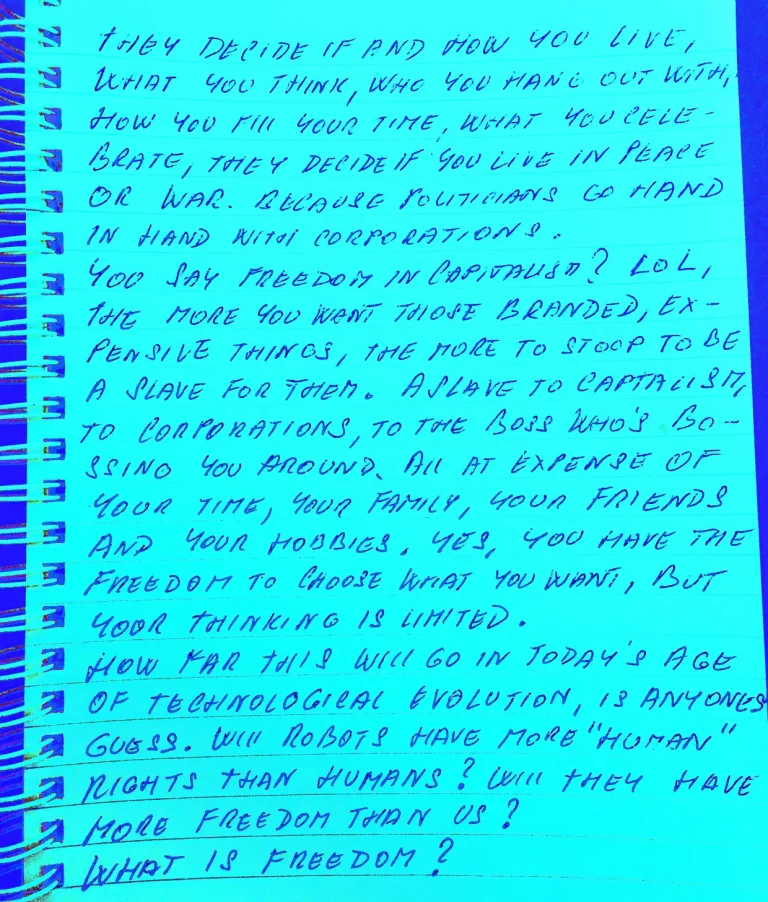 THEY DECIDE IF AND HOW YOU LIVE,
WHAT YOU THINK, WHO YOU HANG OUT WITH,
HOW YOU FILL YOUR TIME, WHAT YOU CELE-
BRATE, THEY DECIDE IF YOU LIVE IN PEACE
OR WAR. BECAUSE POLITICIANS GO HAND
IN HAND WITH CORPORATIONS.
YOU SAY FREEDOM IN CAPITALISM? LOL,
THE MORE YOU WANT THOSE BRANDED, EX-
PENSIVE THINGS, THE MORE TO STOOP TO BE
A SLAVE FOR THEM. A SLAVE TO CAPTALISM,
TO CORPORATIONS, TO THE BOSS WHO'S BO-
SSING YOU AROUND. ALL AT EXPENSE OF
YOUR TIME, YOUR FAMILY, YOUR FRIENDS
AND YOUR HOBBIES. YES, YOU HAVE THE
FREEDOM TO CHOOSE WHAT YOU WANT, BUT
YOUR THINKING IS LIMITED.
HOW FAR THIS WILL GO IN TODAY'S AGE
OF TECHNOLOGICAL EVOLUTION, IS ANYONES
GUESS. WILL ROBOTS HAVE MORE "HUMAN"
RIGHTS THAN HUMANS? WILL THEY HAVE
MORE FREEDOM THAN US?
WHAT IS FREEDOM?